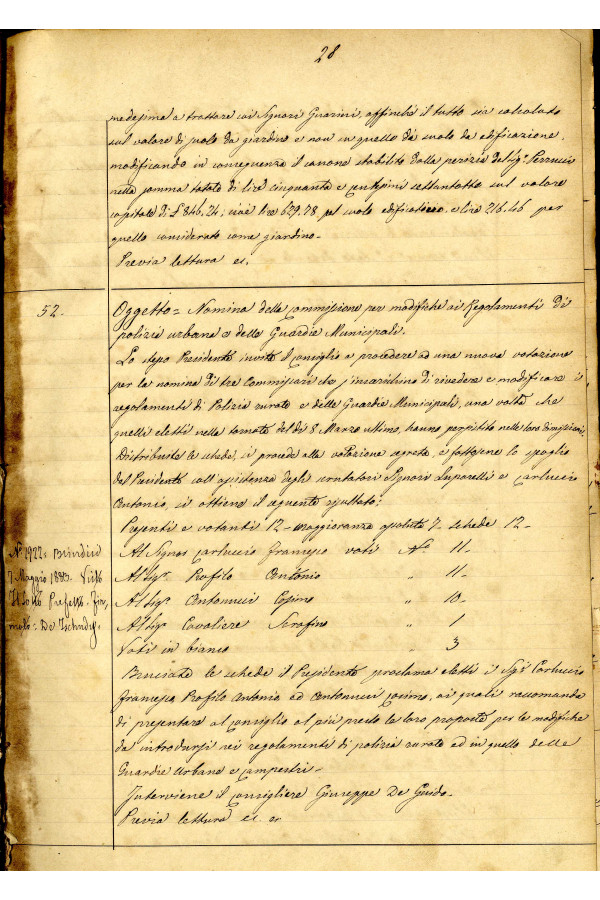 28
medesima a trattare coi Signori Guarini, affinchè il tutto sia calcolato
sul valore di suolo da giardino e non in quello da suolo da edificazione,
modificando in conseguenza il canone stabilito dalla perizia del Sigr. Perrucci
nella somma totale di lire cinquanta e centesimi settantotto sul valore
capitale di £ 846,24; cioè lire 629.78 pel suolo edificatorio e lire 216.46 per
quello considerato come giardino.
Previa lettura ec.
52.
Oggetto = Nomina della Commissione per modifiche ai Regolamenti di
polizia urbana e delle Guardie Municipali.
Lo stesso Presidente invita il Consiglio a procedere ad una nuova votazione
per la nomina di tre Commissari che s'incarichino di rivedere e modificare i
regolamenti di Polizia rurale e delle Guardie Municipali, una volta che
quelli eletti nella tornata del dì 8 Marzo ultimo, hanno persistito nelle loro dimissioni.
Distribuite le schede, si procede alla votazione segreta, e fattosene lo spoglio
dal Presidente coll'assistenza degli scrutatori Signori Luparelli e Carluccio
Antonio, si ottiene il seguente risultato:
Presenti e votanti 12 - Maggioranza assoluta 7 - Schede 12 -
Al Signor Carluccio Francesco voti No 11 -
Al Sigr. Profilo Antonio " 11 -
Al Sigr. Antonucci Cosimo " 10 -
Al Sigr. Cavaliere Serafino " 1
Voti in bianco " 3
No 1922. Brindisi
7 Maggio 1883. Visto
Il Sotto Prefetto. Fir-
mato = De Tschudy.
Bruciate le schede il Presidente proclama eletti i Sigri Carluccio
Francesco Profilo Antonio ed Antonucci Cosimo, ai quali raccomanda
di presentare al Consiglio al più presto le loro proposte per le modifiche
da introdursi nei regolamenti di polizia rurale ed in quello delle
Guardie Urbane e campestri -
Interviene il Consigliere Giuseppe De Guido -
Previa lettura ec. ec